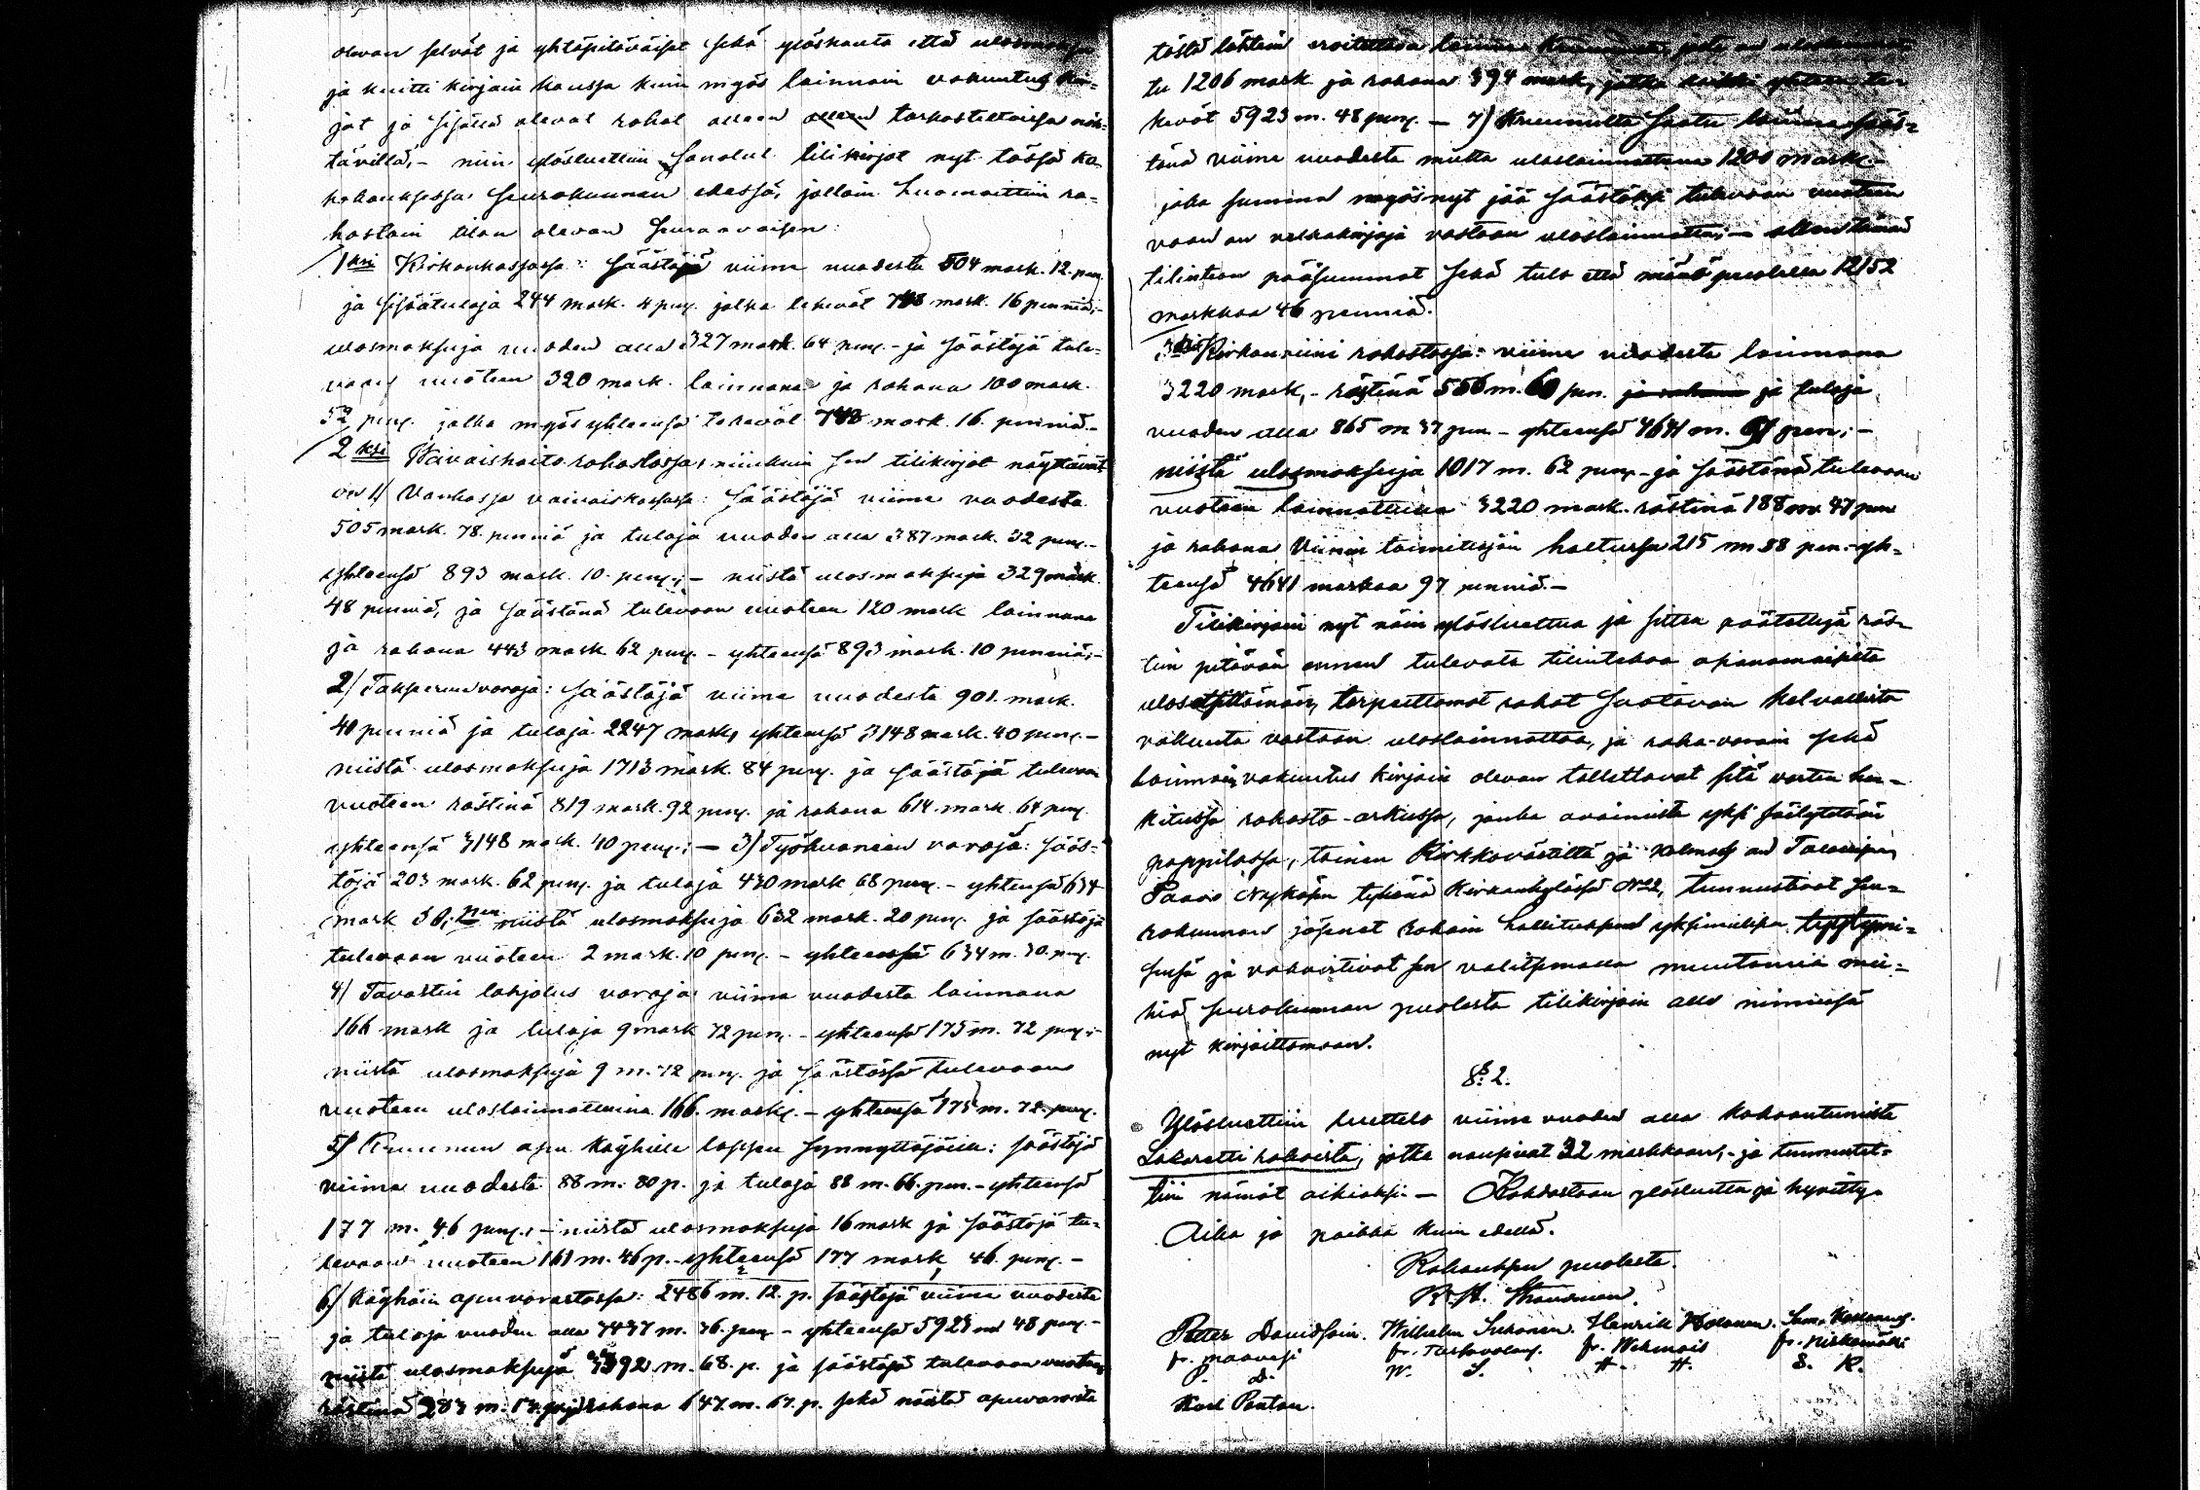 olevan selvät ja yhtäpitäväiset sekä ylöskanto että ulosmaksu
ja kuitti kirjain kanssa kuin myös lainnain vakuutus kir-
jat ja sisällä olevat rahat olleen tarkasteltaissa näh-
tävillä; – niin ylösluettiin sanotut tilikirjat nyt tässä ko-
kouksessa seurakunnan edessä, jolloin huomaittiin ra-
hastoin tilan olevan seuraavaisen:
1ksi Kirkonkassassa: säästöjä viime vuodesta 504 mark. 12. pen.
ja sisäätuloja 244 mark. 4 pen. jotka tekevät 748 mark. 16 penniä; –
ulosmaksuja vuoden alla 327 mark. 64 pen. – ja säästöjä tule-
vaan vuoteen 320 mark. lainnana ja rahana 100 mark.
52 pen. jotka myös yhteensä tekevät 748 mark. 16. penniä –
2ksi Waivaishoito rahastossa, niinkuin sen tilikirjat näyttävät
on 1/ Vanhassa vaivaiskassassa: säästöjä viime vuodesta
505 mark. 78. penniä ja tuloja vuoden alla 387 mark. 32 pen. –
yhteensä 893 mark. 10. pen.; – niistä ulosmaksuja 329 mark.
48 penniä, ja säästönä tulevaan vuoteen 120 mark lainnana
ja rahana 443 mark 62 pen. – yhteensä 893 mark. 10 penniä; –
2/ varoja: säästöjä viime vuodesta 901. mark.
40 penniä ja tuloja 2247 mark, yhteensä 3148 mark. 40 pen. –
niistä ulosmaksuja 1713 mark. 84 pen. ja säästöjä tulevaan
vuoteen rästinä 819 mark. 92 pen. ja rahana 614 mark. 64 pen.
yhteensä 3148 mark. 40 pen.; – 3/ Työhuoneen varoja: sääs-
töjä 203 mark. 62 pen. ja tuloja 430 mark 68 pen. – yhteensä 634
mark 30. pen. niistä ulosmaksuja 632 mark. 20 pen. ja säästöjä
tulevaan vuoteen 2 mark. 10 pen. – yhteensä 634 m. 30 pen.
4/ Tavastin lahjoitus varoja viime vuodesta lainnana
166 mark ja tuloja 9 mark 72 pen. – yhteensä 175 m. 72 pen. –
niistä ulosmaksuja 9 m. 72 pen. ja säästössä tulevaan
vuoteen uloslainnattuina 166. mark. – yhteensä 175 m. 72 pen.
5/ Kruunun apu köyhille lapsen synnyttäjöille: säästöjä
viime vuodesta 88 m. 80 p. ja tuloja 88 m. 66. pen. – yhteensä
177 m. 46 pen.; – niistä ulosmaksuja 16 mark ja säästöjä tu-
levaan vuoteen 161 m. 46 p. – yhteensä 177 mark 46. pen. –
6/ Köyhäin apu varastossa: 2486 m. 12. p. säästöjä viime vuodesta
ja tuloja vuoden alla 3437 m. 36. pen. – yhteensä 5923 m 48 pen. –
niistä ulosmaksuja 3392. m. 68. p. ja säästöjä tulevaan vuoteen
rästinä 283 m. 13. pen. ja rahana 647. m. 67. p. sekä näistä apuvaroista
tästä lähtein eroitettava laina
tu 1206 mark ja rahana 394 mark, jotka kaikki yhteen te-
kevät 5923 m. 48 pen. – 7/ Kruunulta saatu laina sääs-
tönä viime vuodesta mutta uloslainnattuna 1200 mark. –
joka summa myösnyt jää säästöksi tulevaan vuoteen
vaan on velkakirjoja vastaan uloslainnattu; – ollen tämän
tilinteon pääsummat sekä tulo että meno puolella 12152
markkaa 46 penniä.
3ksi Kirkonviini rahastossa: viime vuodesta lainnana
3220 mark, – rästinä 556 m. 60 pen. ja rahana ja tuloja
vuoden alla 865 m 37 pen – yhteensä 4641 m. 97 pen; –
niistä ulosmaksuja 1017 m. 62 pen – ja säästönä tulevaan
vuoteen lainnattuna 3220 mark. rästinä 188 m 47 pen
ja rahana Viinin toimittajan hallussa 215 m 88 pen – yh-
teensä 4641 markaa 97 penniä –
Tilikirjain nyt näin ylösluettua ja sitten päätettyä räs-
tiin pitävän ennen tulevata tilintekoa
tarpeettomat rahat saatavan kelvollista
vakuuta vastaan uloslainnattaa, ja raha-varain sekä
lainnain vakuutus kirjain olevan tallettavat sitä varten han-
kitussa rahasto-arkussa, jonka avaimista yksi säilytetään
pappilassa, toinen Kirkkoväärtillä ja kolmas on Talonpoj.
Paavo Kirkonkylässä No 2, tunnustivat seu-
rakunnan jäsenet rahain hallituksen yksimielisen tyytymi-
sensä ja vahvistivat sen valitsemalla muutamia mie-
hiä seurakunnan puolesta tilikirjain alle nimiensä
nyt kirjoittamaan.
§. 2.
Ylösluettiin luettelo viime vuoden alla kokoontumista
Lasaretti rahoista, jotka nousivat 32 markkaan; – ja tunnustet-
tiin nämät oikiaksi. – Kohdastaan ylösluettu ja hyvitetty.
Aika ja paikka kuin edellä.
Kokouksen puolesta.
K. H. Strandman.
Petter Davidsson. Wilhelm Suhonen. Henrik Holonen.
fr. Maavesi fr. fr. Wehmais fr.
P. D. W. S. H. H. S. K.
Karl Pontan.